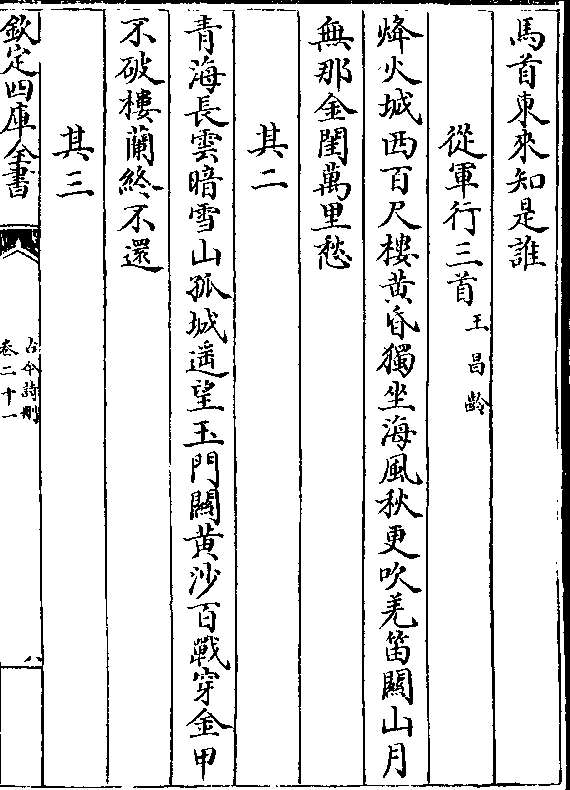 馬首東來知是誰
從軍行三首 王昌齡
烽火城西百尺樓黃昏獨坐海風秋更吹羌笛關山月
無那金閨萬里愁
其二
青海長雲暗雪山孤城遥望玉門關黃沙百戰穿金甲
不破樓蘭終不還
其三
欽定四庫全書
古今詩刪
卷二十一
八